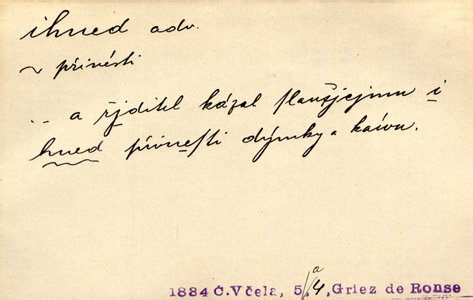 ihned adv.
~ přinésti
... a řjditel kázal slaužjcjmu i
hned přinesti dýmky a kávu.
1834 Č. Včela, 5/a4, Griez de Ronse